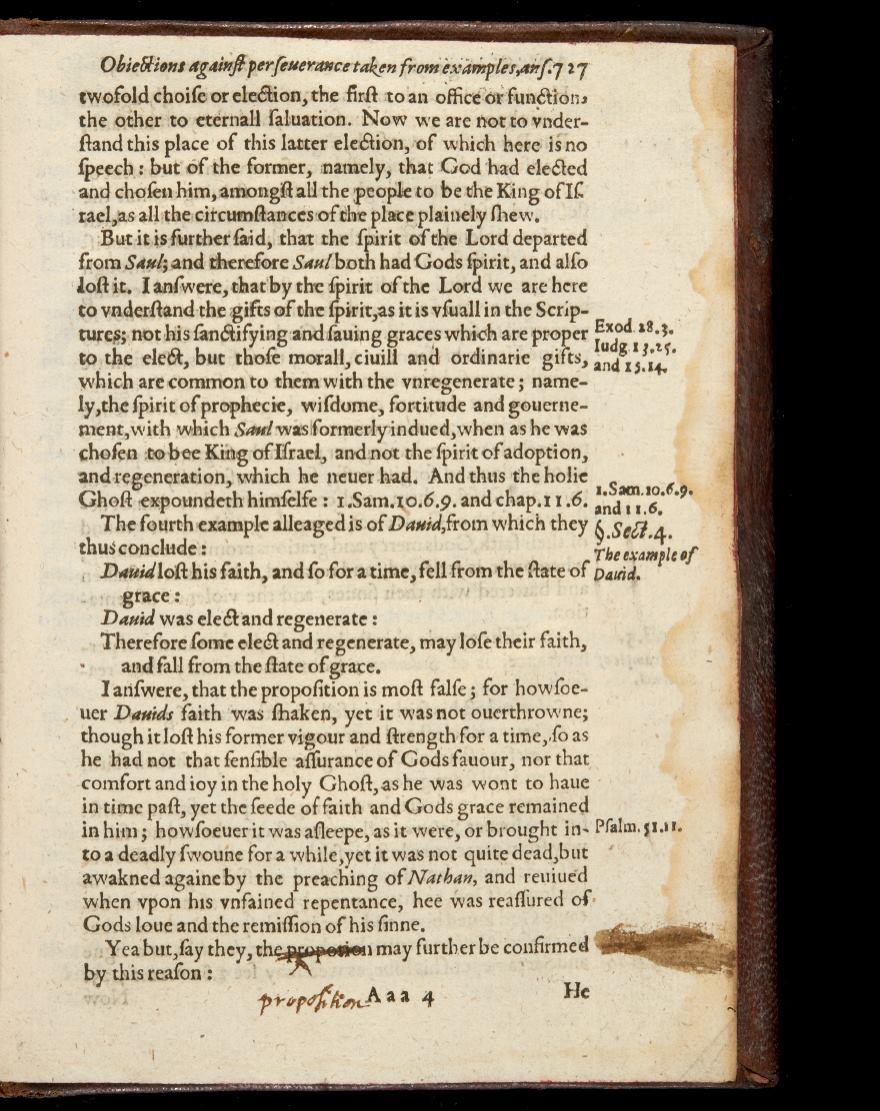 Obiections against perseuerance taken from examples, ans. 727
twofold choiſe or election, the firſt to an office or function,
the other to eternall ſaluation. Now we are not to vnder-
ſtand this place of this latter election, of which here is no
ſpeech : but of the former, namely, that God had elected
and choſen him, amongſt all the people to be the King of Iſ-
rael, as all the circumſtances of the place plainely ſhew.
But it is further ſaid, that the ſpirit of the Lord departed
from Saul; and therefore Saul both had Gods ſpirit, and alſo
loſt it. I anſwere, that by the ſpirit of the Lord we are here
to vnderſtand the gifts of the ſpirit, as it is vſuall in the Scrip-
tures; not his ſanctifying and ſauing graces which are proper
Exod. 28.3.
Iudg. 13.25.
and 15.14.
to the elect, but thoſe morall, ciuill and ordinarie gifts,
which are common to them with the vnregenerate ; name-
ly, the ſpirit of prophecie, wiſdome, fortitude and gouerne-
ment, with which Saul was formerly indued, when as he was
choſen to bee King of Iſrael, and not the ſpirit of adoption,
and regeneration, which he neuer had. And thus the holie
Ghoſt expoundeth himſelfe : 1.Sam.10.6.9. and chap.11.6.
1.Sam.10.6.9.
and 11.6.
The fourth example alleaged is of Dauid, from which they
§.Sect.4.
The example of
Dauid.
thus conclude :
Dauid loſt his faith, and ſo for a time, fell from the ſtate of
grace :
Dauid was elect and regenerate :
Therefore ſome elect and regenerate, may loſe their faith,
and fall from the ſtate of grace.
I anſwere, that the propoſition is moſt falſe ; for howſoe-
uer Dauids faith was ſhaken, yet it was not ouerthrowne;
though it loſt his former vigour and ſtrength for a time, ſo as
he had not that ſenſible aſſurance of Gods fauour, nor that
comfort and ioy in the holy Ghoſt, as he was wont to haue
in time paſt, yet the ſeede of faith and Gods grace remained
in him ; howſoeuer it was aſleepe, as it were, or brought in-
Pſalm. 51.11.
to a deadly ſwoune for a while, yet it was not quite dead, but
awakned againe by the preaching of Nathan, and reuiued
when vpon his vnfained repentance, hee was reaſſured of
Gods loue and the remiſſion of his ſinne.
Yea but, ſay they, the propotion may further be confirmed
by this reaſon :
propoſition
A a a 4
He